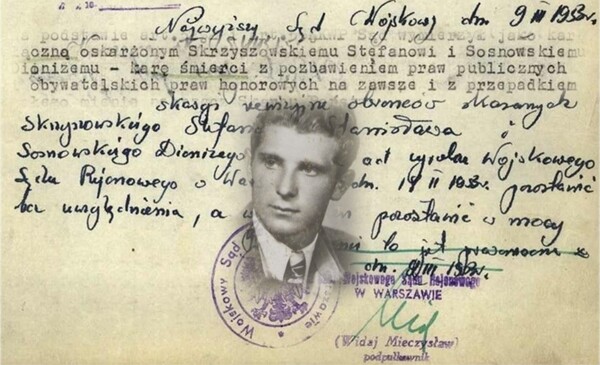 Najwyższy Sąd Wojskowy dn. 9 III 1953r.
oskarżonym Skrzyszowskiemu Stefanowi i Sosnowskiemu
Dionizemu - karę śmierci z pozbawieniem praw publicznych
obywatelskich praw honorowych na zawsze i z przepadkiem
skargi rewizyjne obrońców skazanych
Skrzyszowskiego Stefana Stanisława i
Sosnowskiego Dionizego od wyroku Wojskowego
Sądu Rejonowego w dn. 19 II 1953r. pozostawić
bez uwzględnienia, a pozostawić w mocy
to jest prawomocne z
dn. 9 III 1953r.
Wojskowego Sądu Rejonowego
W WARSZAWIE
Wojskowy Sąd
(Widaj Mieczysław)
podpułkownik